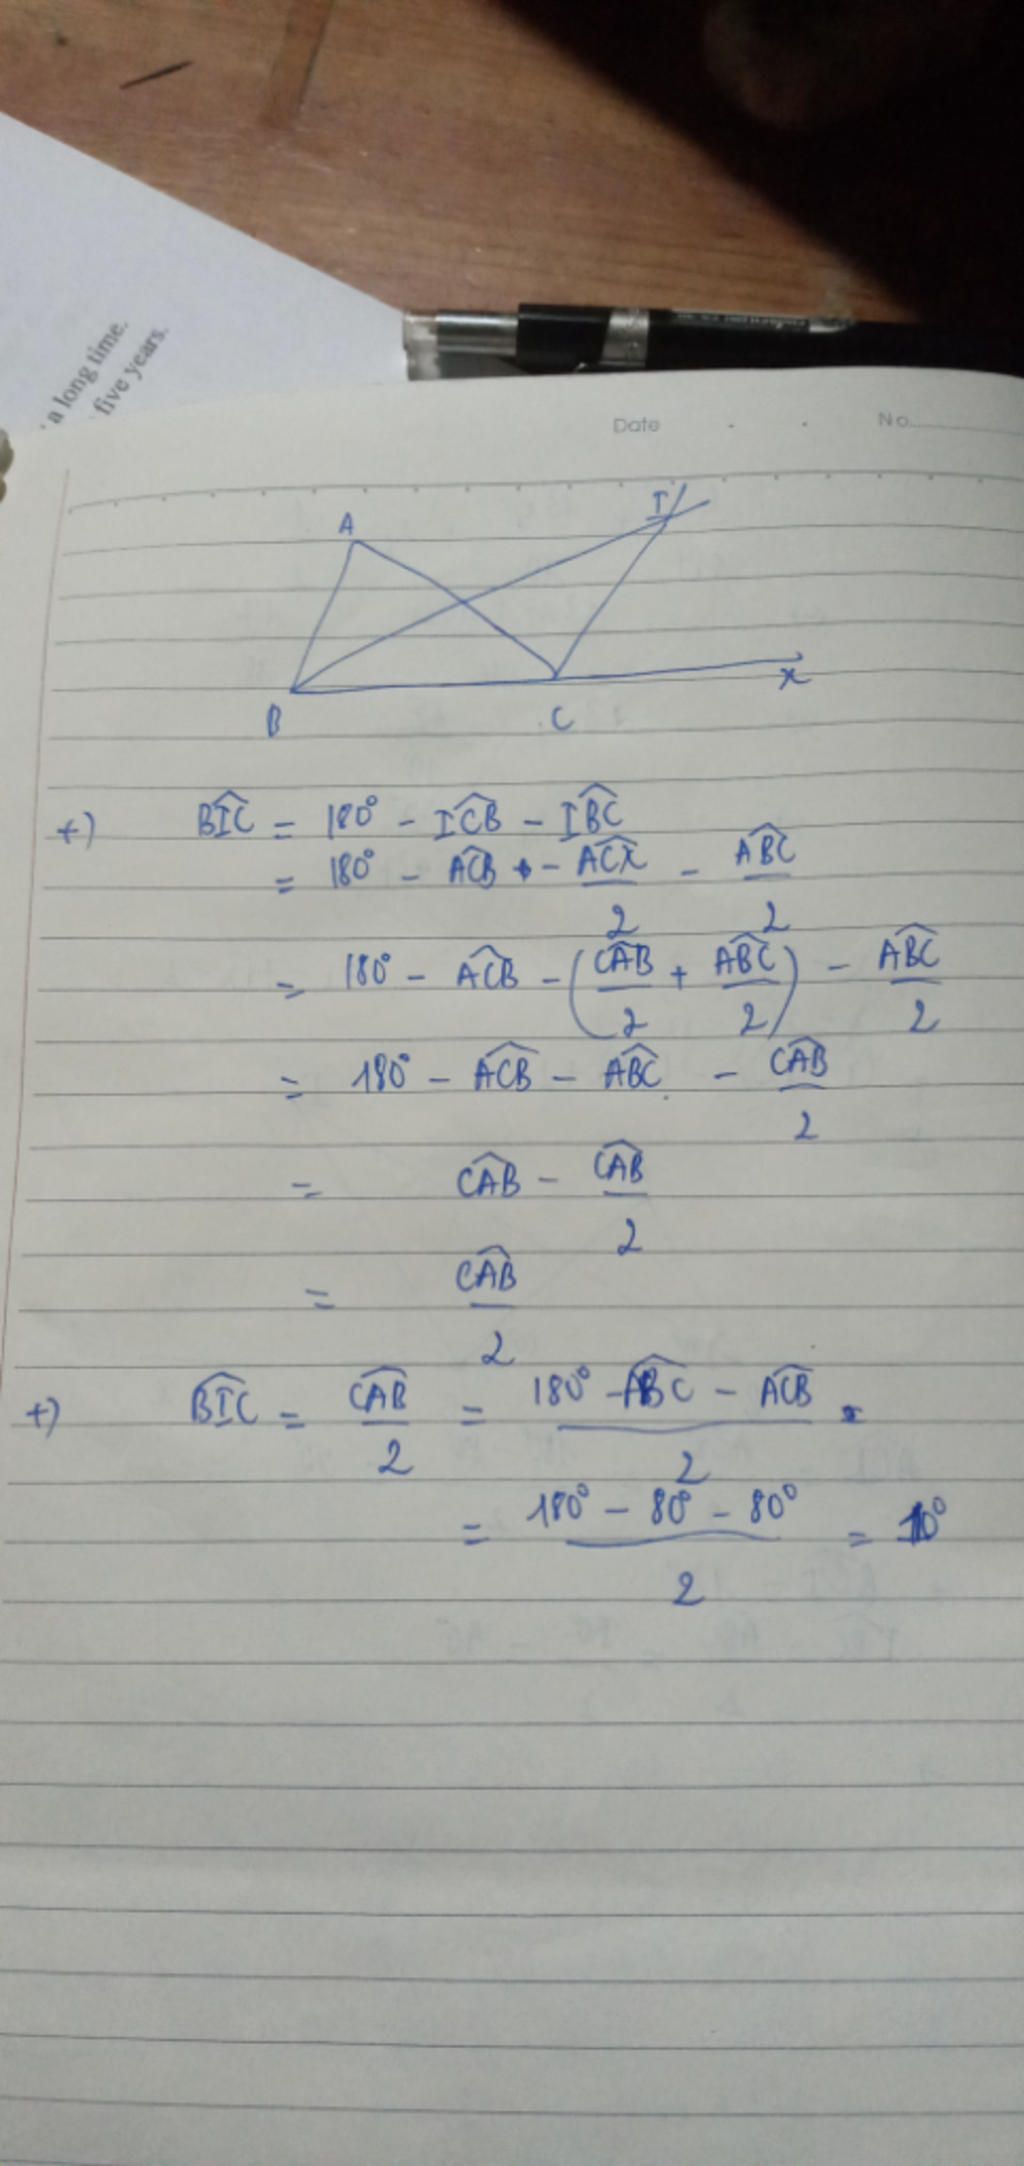 a long time.
five years.
Date . . No
A
I
B
C
x
+) BIC^ = 180° - ICB^ - IBC^
= 180° - ACB^ - ACx^/2 - ABC^/2
= 180° - ACB^ - (CAB^/2 + ABC^/2) - ABC^/2
= 180° - ACB^ - ABC^ - CAB^/2
= CAB^ - CAB^/2
= CAB^/2
+) BIC^ = CAB^/2 = (180° - ABC^ - ACB^)/2
= (180° - 80° - 80°)/2 = 10°